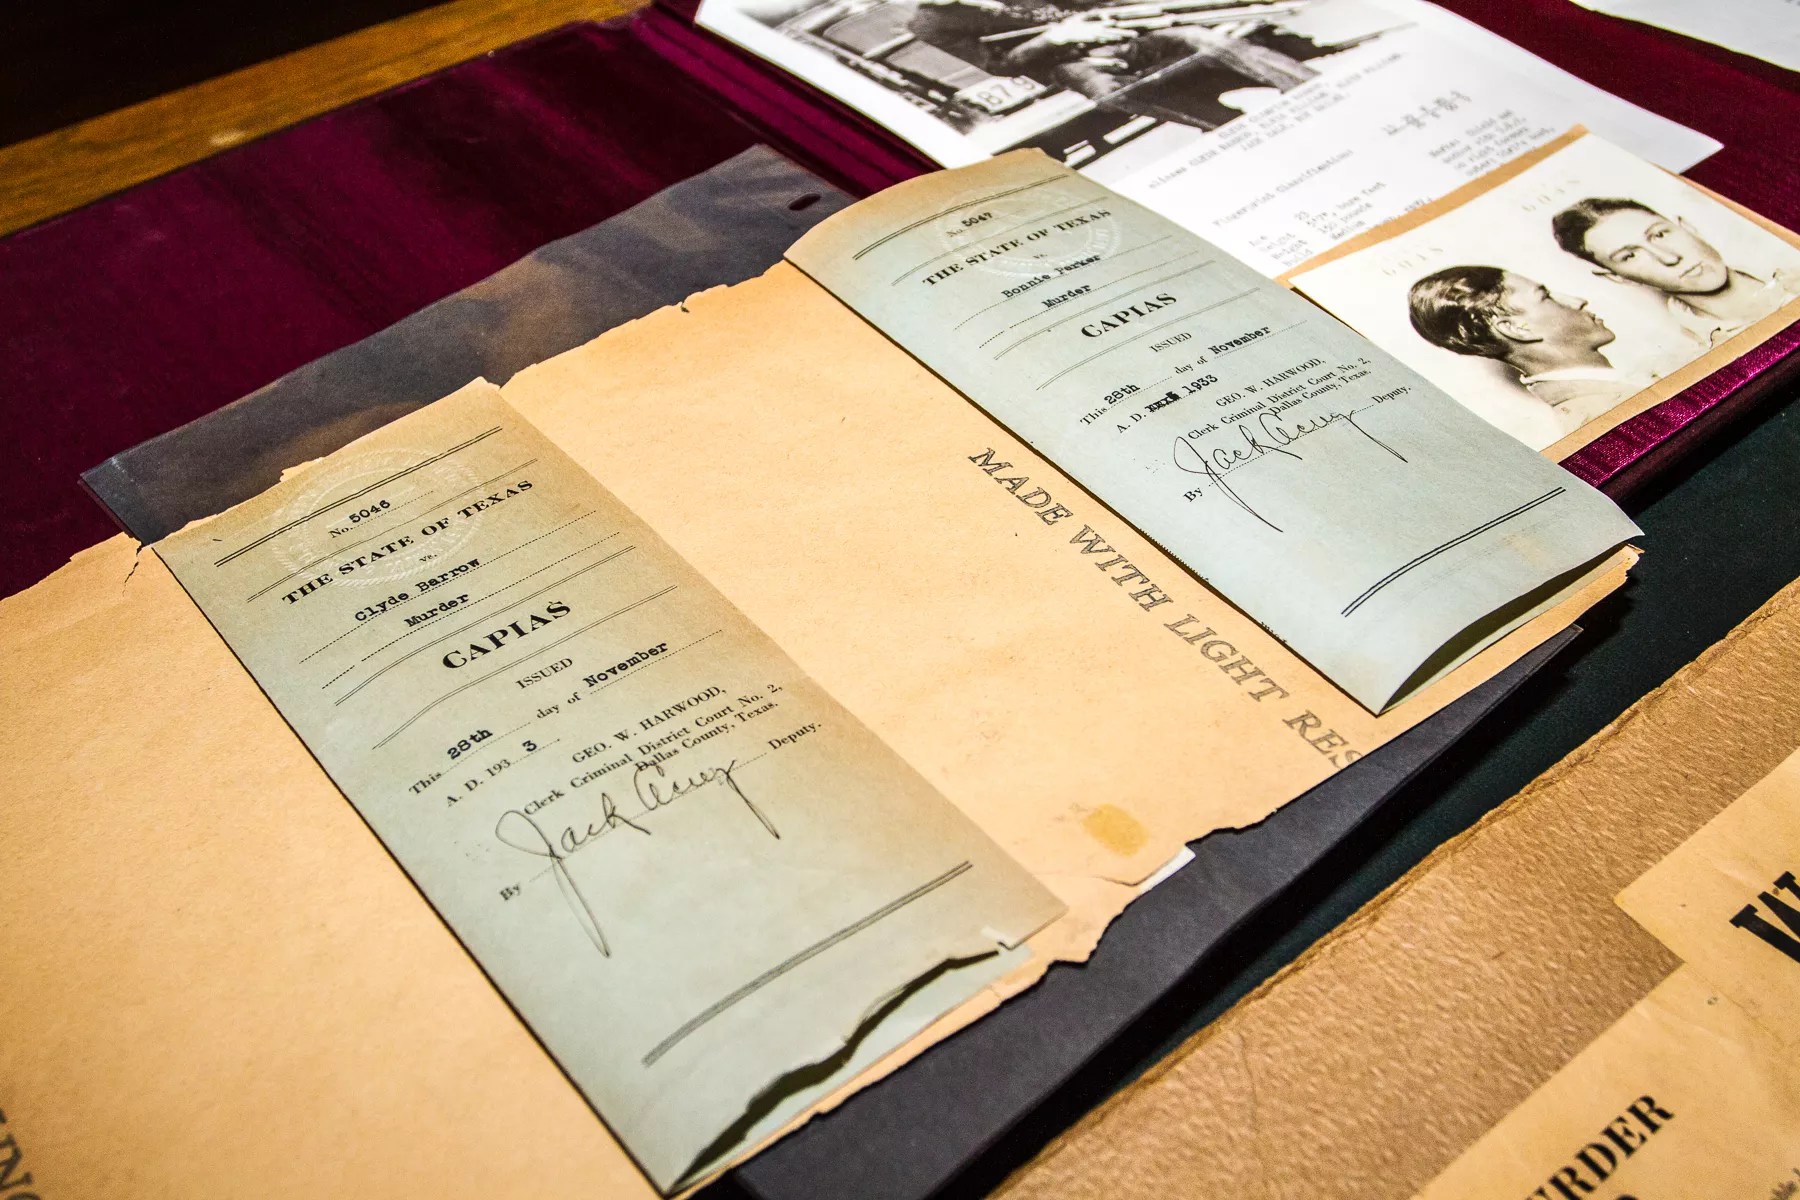 No. 5046
THE STATE OF TEXAS
vs.
Clyde Barrow
Murder
CAPIAS
ISSUED
This 28th day of November
A. D. 193 3
GEO. W. HARWOOD,
Clerk Criminal District Court No. 2,
Dallas County, Texas.
By Jack Deputy.
No. 5047
THE STATE OF TEXAS
vs.
Bonnie Parker
Murder
CAPIAS
ISSUED
This 28th day of November
A. D. 1933
GEO. W. HARWOOD,
Clerk Criminal District Court No. 2,
Dallas County, Texas.
By Jack Deputy.
MADE WITH LIGHT RES
B79
Fingerprint Classification:
Age
Height
Weight 150 pounds
Build Medium
URDER